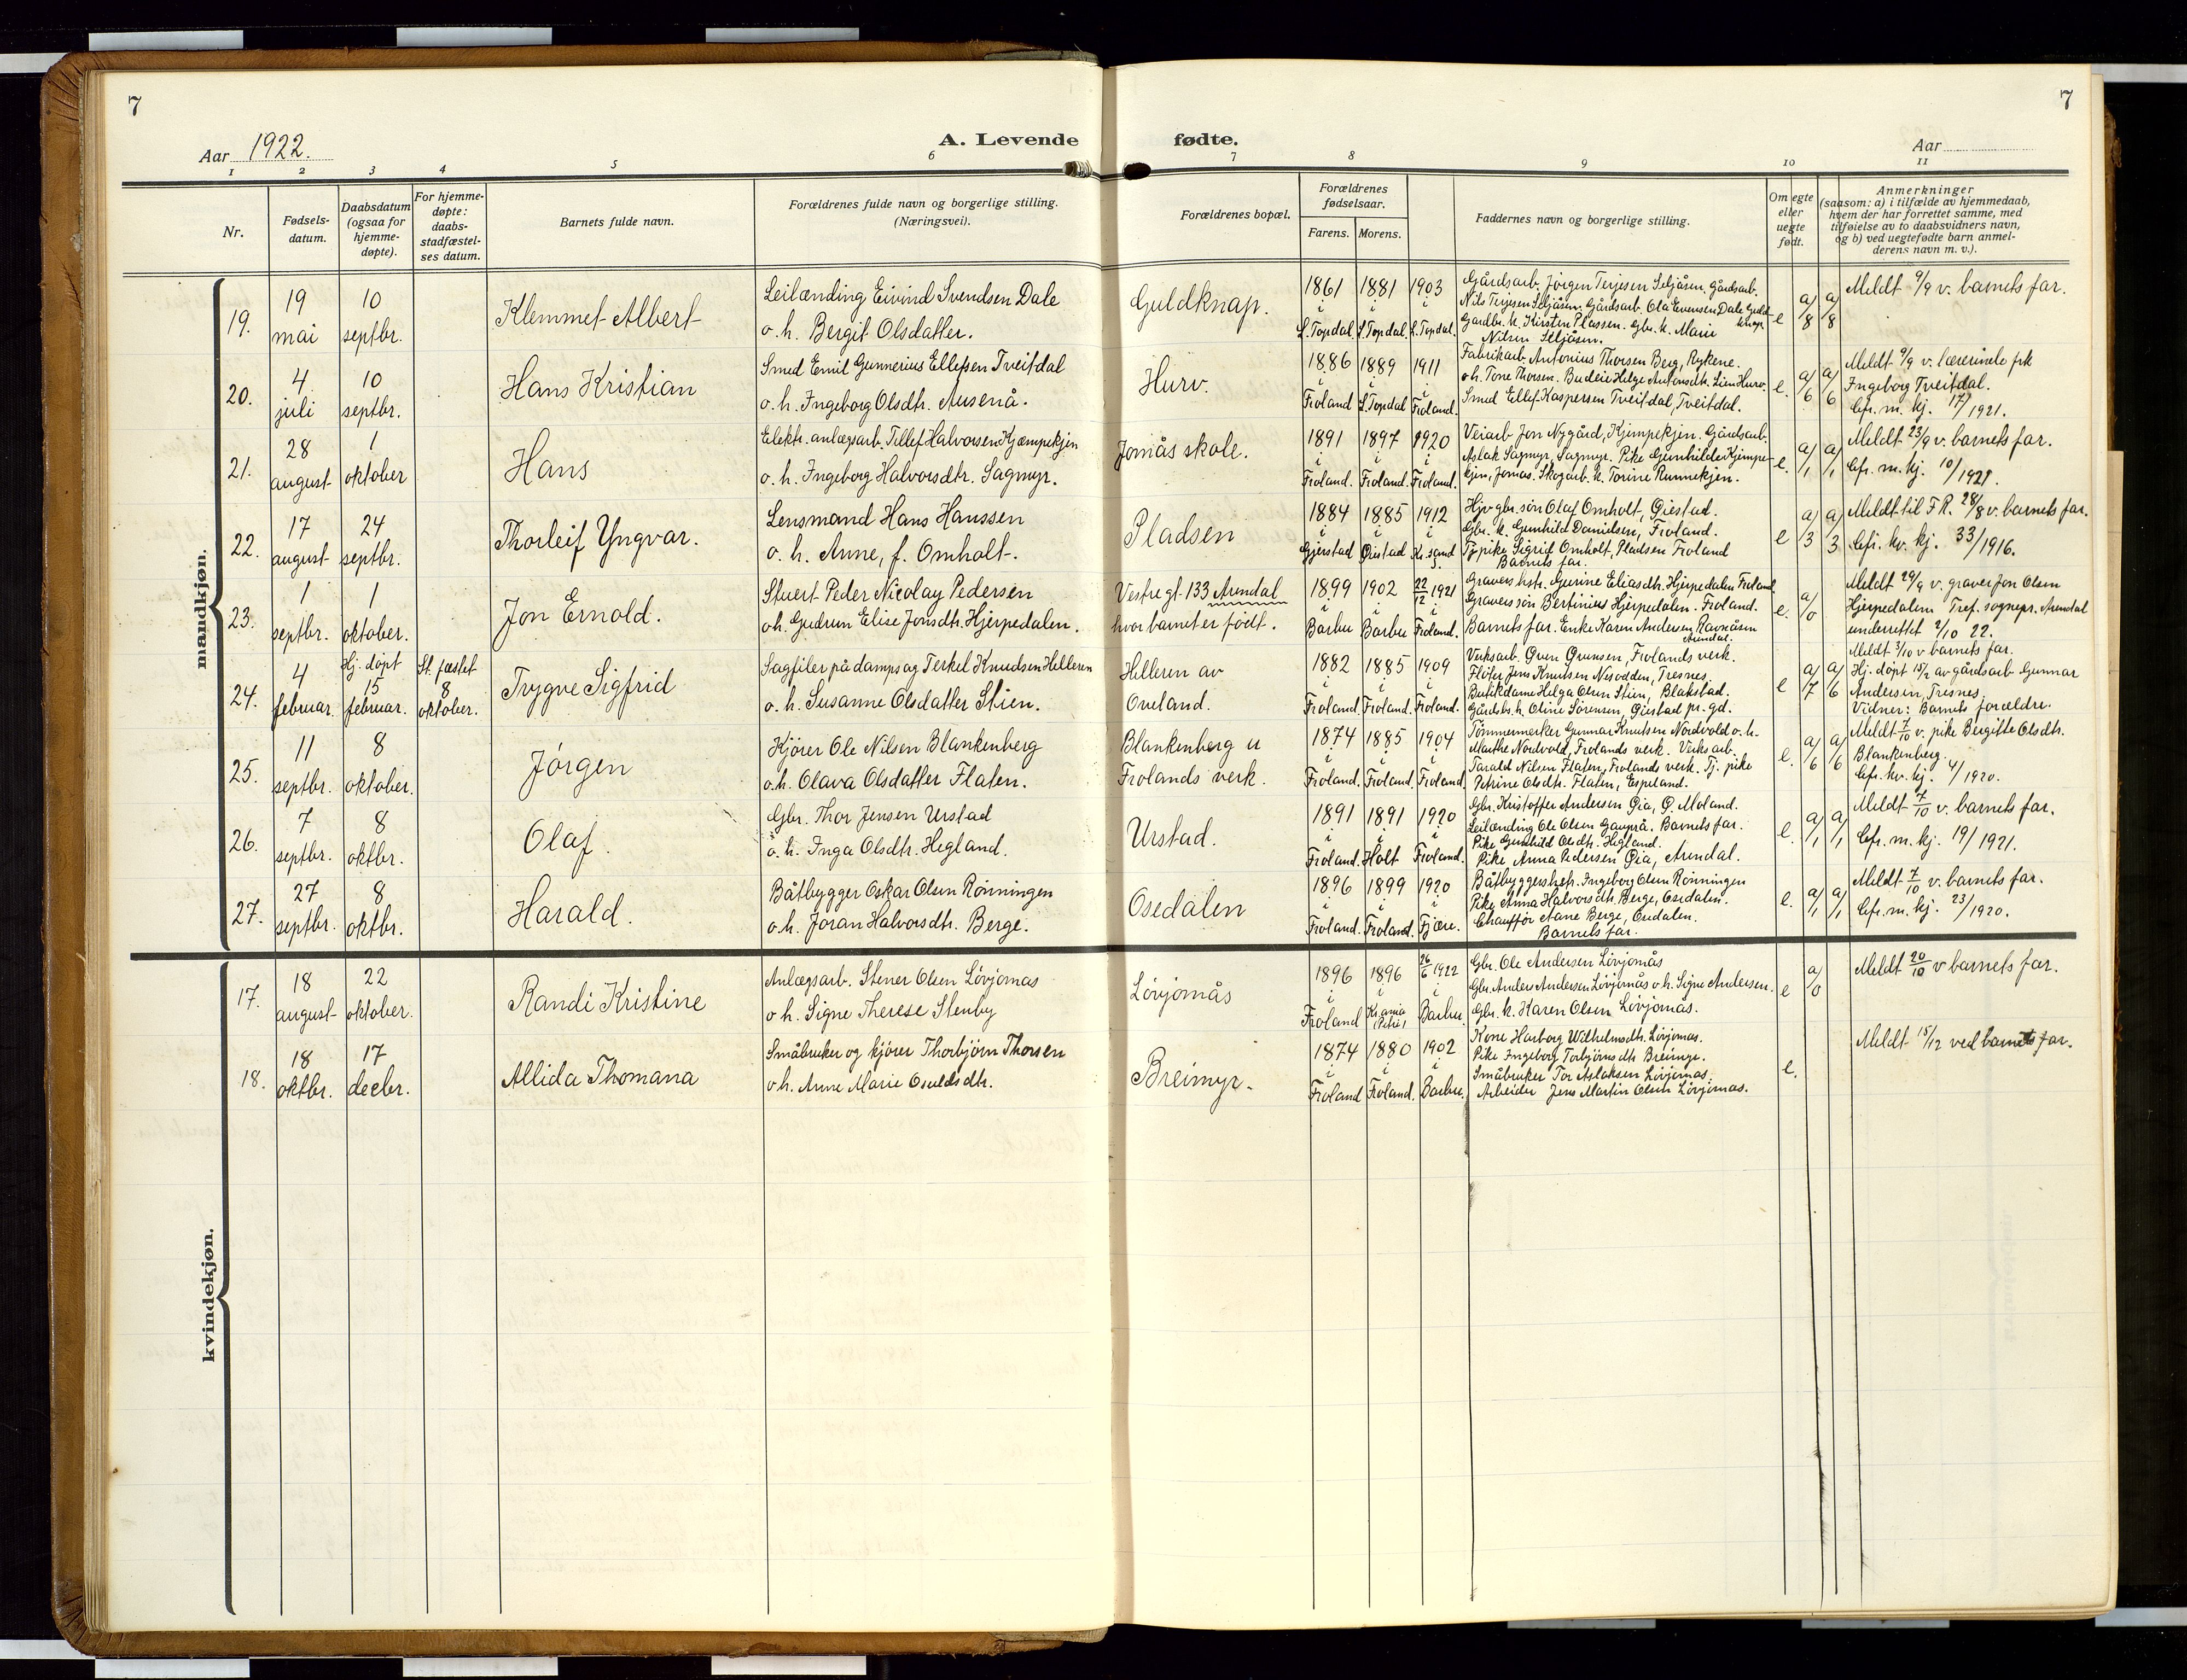 7
7
Aar 1922.
A. Levende fødte.
Aar
1 2 3 4 5 6 7 8 9 10 11
Nr.
Fødsels-
datum.
Daabsdatum
(ogsaa for
hjemme-
døpte).
For hjemme-
døpte:
daabs-
stadfæstel-
ses datum.
Barnets fulde navn.
Forældrenes fulde navn og borgerlige stilling.
(Næringsvei).
Forældrenes bopæl.
Forældrenes
fødselsaar.
Farens. Morens.
Faddernes navn og borgerlige stilling.
Om egte
eller
uegte
født.
Anmerkninger
(saasom: a) i tilfælde av hjemmedaab,
hvem der har forrettet samme, med
tilføielse av to daabsvidners navn,
og b) ved uegtefødte barn anmel-
derens navn m. v.).
mandkjøn.
19.
19
mai
10
septbr.
Klemmet Albert
Leilænding Eivind Svendsen Dale
o. h. Bergit Olsdatter.
Guldknap.
1861 1881 1903
i i i
S. Topdal S. Topdal S. Topdal.
Gårdsarb. Jörgen Terjesen Seljåsen. Gårdsarb.
Nils Terjesen Seljåsen. Gårdsarb. Ola Evensen Dale Guld-
knap.
Gardbr. k. Kirsten Plassen. Gbr. k. Marie
Nilsen Seljåsen.
e
a/8 a/8
Meldt 9/9 v. barnets far.
20.
4
juli
10
septbr.
Hans Kristian
Smed Emil Gunnerius Ellefsen Tveitdal
o. h. Ingeborg Olsdtr. Ausenå.
Hurv.
1886 1889 1911
i i i
Froland S. Topdal Froland.
Fabrikarb. Antonius Thorsen Berg, Rykene.
o h. Tone Thorsen. Budeie Helge Antonsdtr. Lien Hurv.
Smed Ellef Kaspersen Tveitdal, Tveitdal.
e.
a/6 a/6
Meldt 9/9 v. lærerinde frk
Ingeborg Tveitdal.
Cfr. m. kj. 17/1921.
21.
28
august
1
oktober
Hans
Elektr. anlægsarb. Tellef Halvorsen Kjempekjen
o. h. Ingeborg Halvorsdtr. Sagmyr.
Jomås skole.
1891 1897 1920
i i i
Froland. Froland. Froland.
Veiarb. Jon Nygård, Kjempekjen. Gårdsarb.
Aslak Sagmyr, Sagmyr. Pike Gunhilde Kjempe-
kjen, Jomås. Skogarb. k. Torine Runnekjen.
e.
a/1 a/1
Meldt 23/9 v. barnets far.
Cfr. m. kj. 10/1921.
22.
17
august
24
septbr.
Thorleif Yngvar.
Lensmand Hans Hanssen
o. h. Anne, f. Omholt.
Pladsen
1884 1885 1912
i i i
Gjerstad Øiestad Kr. sand S.
Hjv gbr. søn Olaf Omholt, Øiestad.
Gbr. k. Gunhild Danielsen, Froland.
Tj. pike Sigrid Omholt, Pladsen Froland
Barnets far.
e
a/3 a/3
Meldt til F R. 28/8 v. barnets far.
Cfr. kv. kj. 33/1916.
23.
1
septbr.
1
oktober.
Jon Ernold.
Stuert Peder Nicolay Pedersen
o h. Gudrun Elise Jonsdtr. Hjerpedalen.
Vestregt. 133 Arendal
hvor barnet er født.
1899 1902 22/12 1921
i i i
Barbu Barbu Froland.
Gravers hstr. Gurine Eliasdtr. Hjerpedalen Froland
Gravers søn Bertinius Hjerpedalen. Froland.
Barnets far. Enke Karen Andersen Ravnåsen
Arendal.
e.
a/0
Meldt 29/9 v. graver Jon Olsen
Hjerpedalen Tref. sognepr. Arendal
underrettet 2/10 22.
24.
4
februar.
Hj. døpt
15
februar.
St. fæstet
8
oktober.
Trygve Sigfrid
Sagfiler på dampsag Terkel Knudsen Helleren
o. h. Susanne Olsdatter Stien.
Helleren av
Oveland.
1882 1885 1909
i i i
Froland. Froland. Froland.
Verksarb. Gven Gvensen, Frolands verk.
Fløter Jens Knutsen Nesodden, Tresnes.
Butikdame Helga Olsen Stien, Blakstad.
Gårdbr. h. Oline Sørensen, Øiestad pr. gd.
e
a/7 a/6
Meldt 3/10 v barnets far.
Hj. døpt 15/2 av gårdsarb. Gunnar
Andersen, Tresnes.
Vidner: Barnets forældre.
25.
11
septbr.
8
oktober.
Jörgen
Kjører Ole Nilsen Blankenberg
o. h. Olava Olsdatter Flaten.
Blankenberg u
Frolands verk.
1874 1885 1904
i i i
Froland. Froland. Froland
Tømmermerker Gunnar Knutsen Nordvold o. h.
Marthe Nordvold, Frolands verk. Verksarb.
Tarald Nilsen Flaten, Frolands verk. Tj. pike
Petrine Olsdtr. Flaten, Espeland.
e.
a/6 a/6
Meldt 7/10 v. pike Bergitte Olsdtr.
Blankenberg.
Cfr. kv. kj. 4/1920.
26.
7
septbr.
8
oktbr.
Olaf.
Gbr. Thor Jensen Urstad
o. h. Inga Olsdtr. Hegland.
Urstad.
1891 1891 1920
i i i
Froland. Holt Froland.
Gbr. Kristoffer Andersen Gia, Ø. Moland.
Leilænding Ole Olsen Gauprå. Barnets far.
Pike Gunhild Olsdtr. Hegland.
Pike Anna Pedersen Gia, Arendal.
e.
a/1 a/1
Meldt 7/10 v. barnets far.
Cfr. m. kj. 19/1921.
27.
27
septbr.
8
oktbr.
Harald.
Båtbygger Oskar Olsen Rønningen
o. h. Joran Halvorsdtr. Berge.
Osedalen
1896 1899 1920
i i i
Froland. Froland. Fjære.
Båtbyggershstr. Ingeborg Olsen Rønningen
Pike Anna Halvorsdtr. Berge, Osedalen.
Chauffør Aane Berge, Osedalen.
Barnets far.
e.
a/1 a/1
Meldt 7/10 v. barnets far.
Cfr. m. kj. 23/1920.
kvindekjøn.
17.
18
august
22
oktober.
Randi Kristine
Anlægsarb. Stener Olsen Lövjomås
o h. Signe Therese Stenby
Lövjomås
1896 1896 26/6 1922
i i i
Froland Kr.ania (Petri) Barbu.
Gbr. Ole Andersen Lövjomås
Gbr. Anders Andersen Lövjomås o. h. Signe Andersen.
Gbr. k. Karen Olsen Lövjomås.
e
a/0
Meldt 20/10 v barnets far.
18.
18
oktbr.
17
decbr.
Allida Thomana
Småbruker og kjører Thorbjörn Thorsen
o h. Anne Marie Osuldsdtr.
Breimyr.
1874 1880 1902
i i i
Froland Froland. Barbu.
Kone Harborg Wilhelmsdtr. Lövjomås.
Pike Ingeborg Torbjörnsdtr. Breimyr.
Småbruker Tor Aslaksen Lövjomås.
Arbeider Jens Martin Olsen Lövjomås.
e.
Meldt 15/12 ved barnets far.